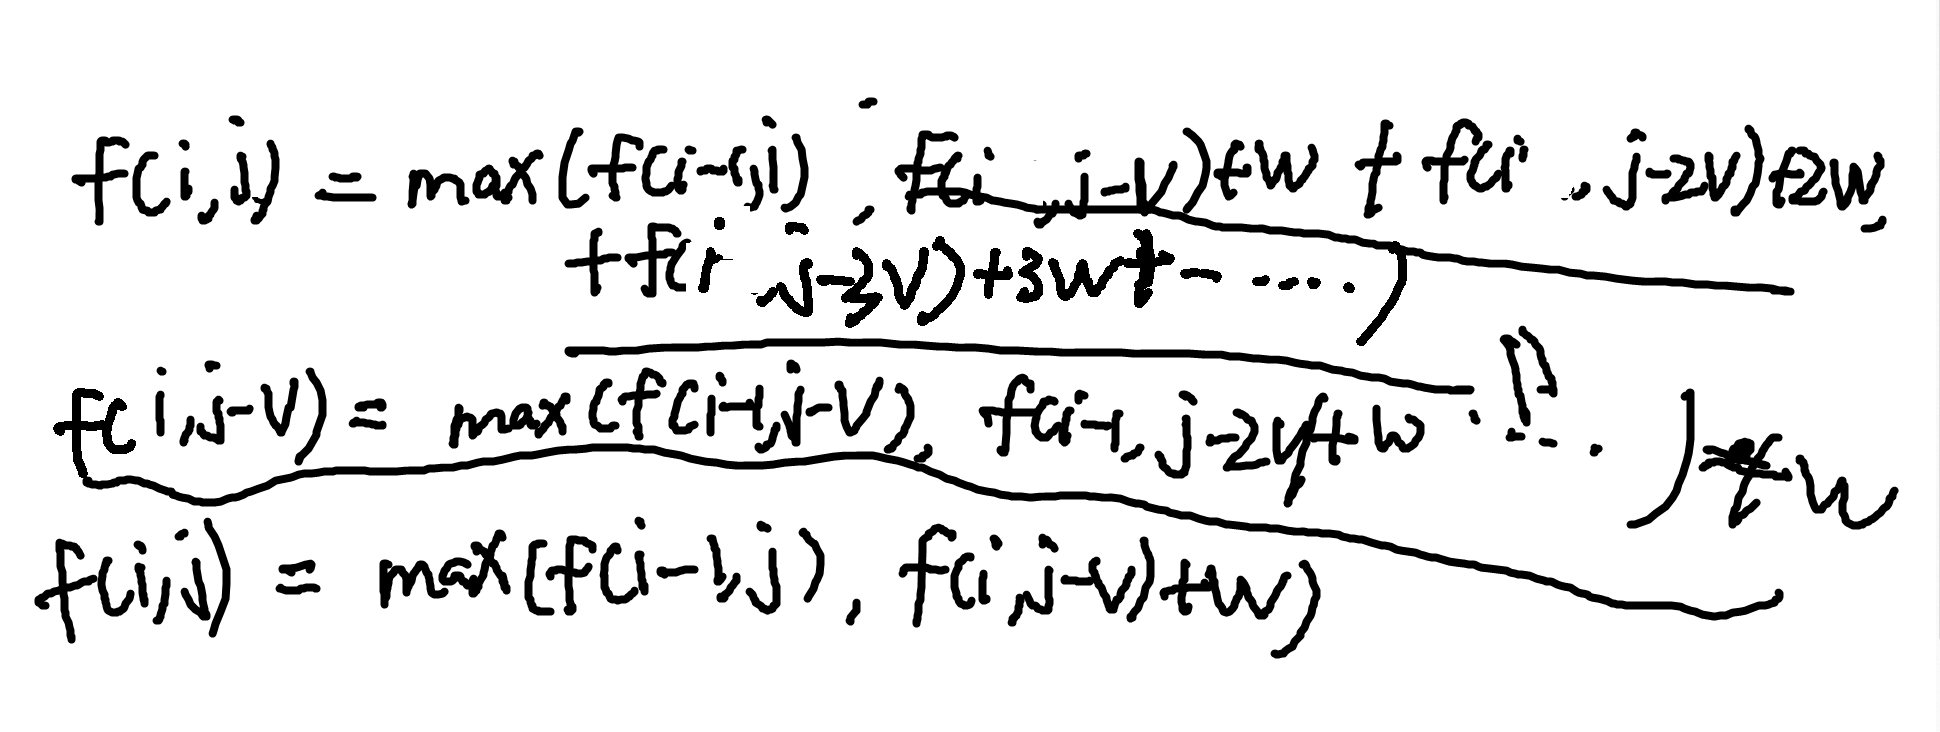 f(i,j) = max(f(i-1,j), f(i,j-v)+w + f(i,j-2v)+2w,
+f(i,j-3v)+3w+-....)
f(i,j-v) = max(f(i-1,j-v), f(i-1,j-2v)+w ....)+w
f(i,j) = max(f(i-1,j), f(i,j-v)+w)